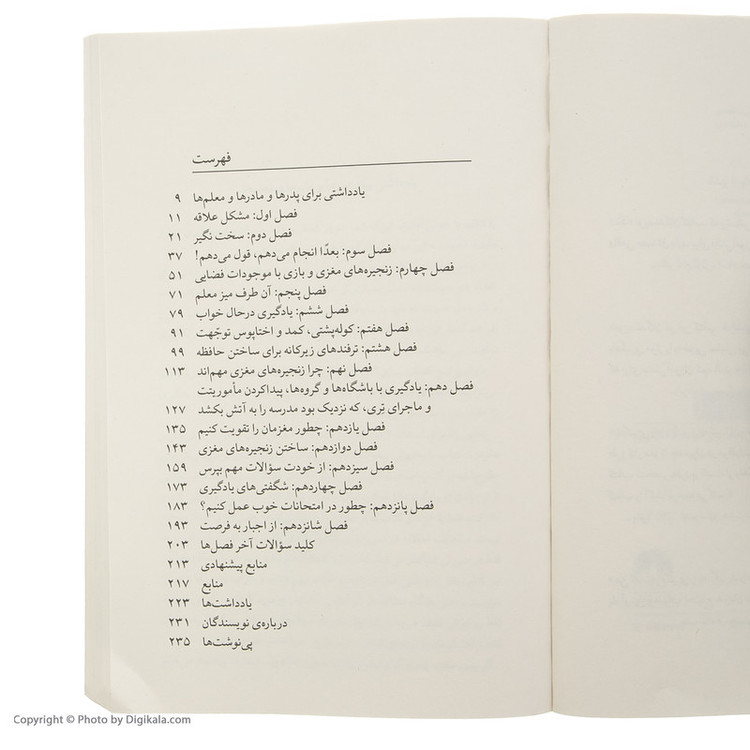 فهرست
یادداشتی برای پدرها و مادرها و معلم‌ها ۹
فصل اول: مشکل علاقه ۱۱
فصل دوم: سخت نگیر ۲۱
فصل سوم: بعدًا انجام می‌دهم، قول می‌دهم! ۳۷
فصل چهارم: زنجیره‌های مغزی و بازی با موجودات فضایی ۵۱
فصل پنجم: آن طرف میز معلم ۷۱
فصل ششم: یادگیری درحال خواب ۷۹
فصل هفتم: کوله‌پشتی، کمد و اختاپوس توجّهت ۹۱
فصل هشتم: ترفندهای زیرکانه برای ساختن حافظه ۹۹
فصل نهم: چرا زنجیره‌های مغزی مهم‌اند ۱۱۳
فصل دهم: یادگیری با باشگاه‌ها و گروه‌ها، پیداکردن مأموریتت
و ماجرای تِری، که نزدیک بود مدرسه را به آتش بکشد ۱۲۷
فصل یازدهم: چطور مغزمان را تقویت کنیم ۱۳۵
فصل دوازدهم: ساختن زنجیره‌های مغزی ۱۴۳
فصل سیزدهم: از خودت سؤالات مهم بپرس ۱۵۹
فصل چهاردهم: شگفتی‌های یادگیری ۱۷۳
فصل پانزدهم: چطور در امتحانات خوب عمل کنیم؟ ۱۸۳
فصل شانزدهم: از اجبار به فرصت ۱۹۳
کلید سؤالات آخر فصل‌ها ۲۰۳
منابع پیشنهادی ۲۱۳
منابع ۲۱۷
یادداشت‌ها ۲۲۳
درباره‌ی نویسندگان ۲۳۱
پی‌نوشت‌ها ۲۳۵
Copyright © Photo by Digikala.com